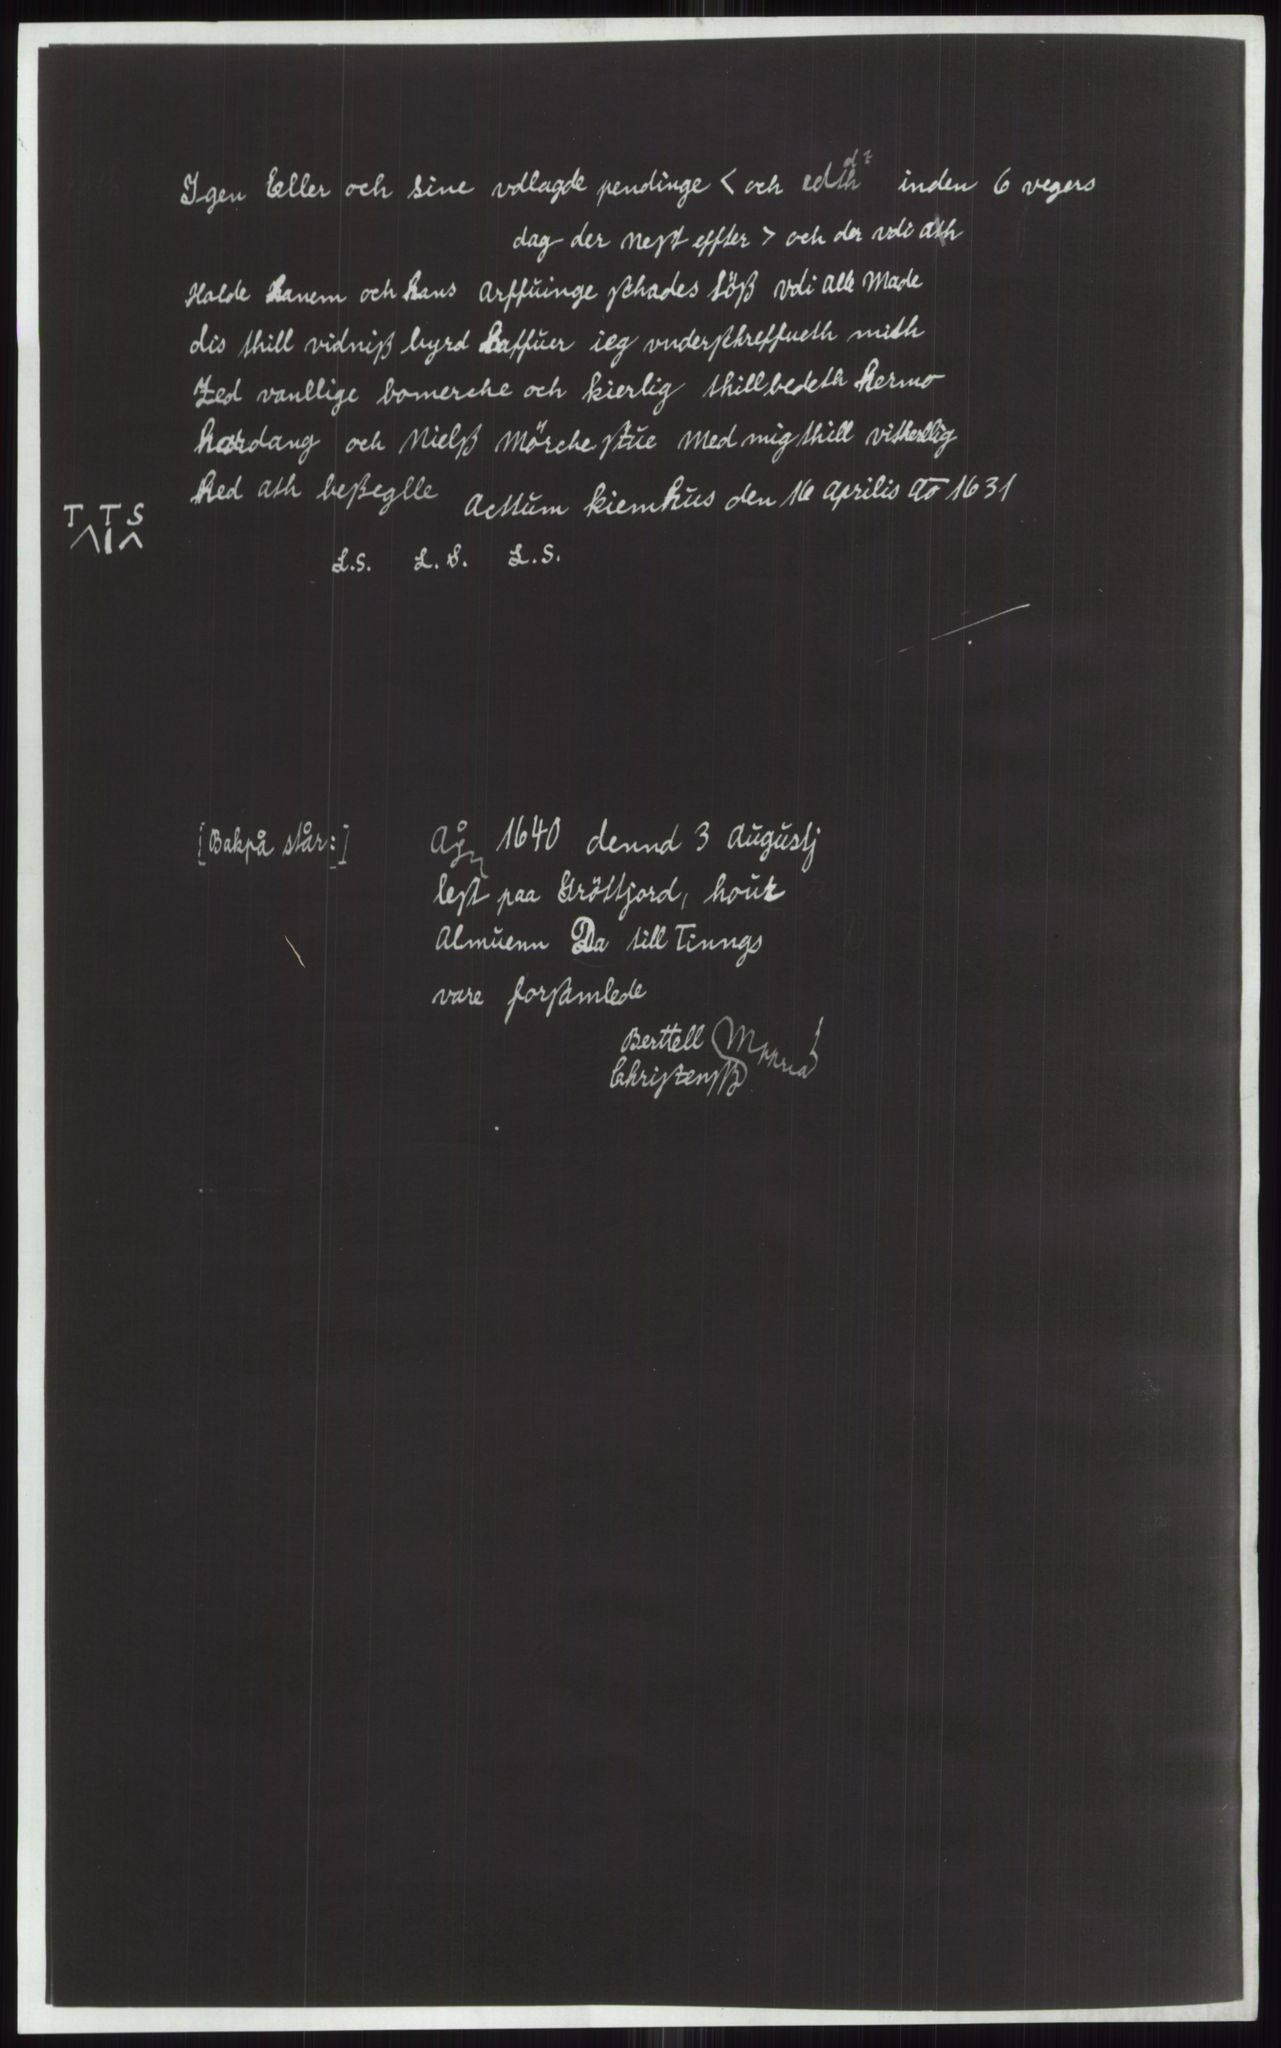 Igen Eller och sine vdlagde pendinge < och edth d? inden 6 vegers
dag der nest effter > och der vdi ath
Halde hanem och hans Arffuinge schades löß vdi alle Made
dis thill vidniß byrd haffuer ieg vnderschreffueth mith
Zed vanllige bomerche och kierlig thillbedeth hermo
hordang och Nielß Mörche stue Med mig thill vitherllig
hed ath beßeglle Acttum kiemhus den 16 Aprilis Ao 1631
T T S
L.S. L.S. L.S.
[Bakpå står:] 1640 dennd 3 Augustj
lest paa Gröttjord, hour
Almuenn Da till Tinngs
vare forsamlede
Berttell
Christenß